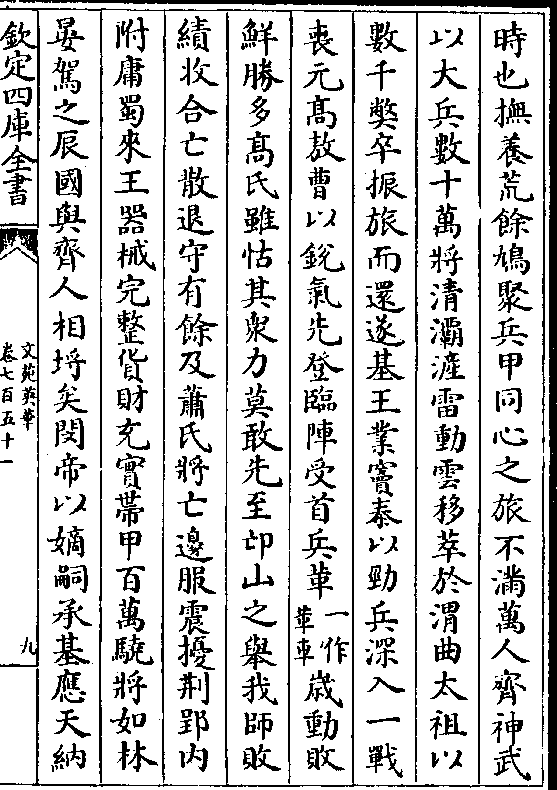 時也撫養荒餘鳩聚兵甲同心之旅不滿萬人齊神武
以大兵數十萬將清灞滻雷動雲移萃於渭曲太祖以
數千獘卒振旅而還遂基王業竇泰以勁兵深入一戰
喪元髙敖曹以銳氣先登臨陣受首兵革一作革車歲動敗
鮮勝多髙氏雖怙其衆力莫敢先至邙山之舉我師敗
績收合亡散退守有餘及蕭氏將亡邊服震擾荆郢内
附庸蜀來王器械完整貨財充實帶甲百萬驍將如林
晏駕之辰國與齊人相埒矣閔帝以嫡嗣承基應天納
欽定四庫全書
文苑英華
卷七百五十一
九